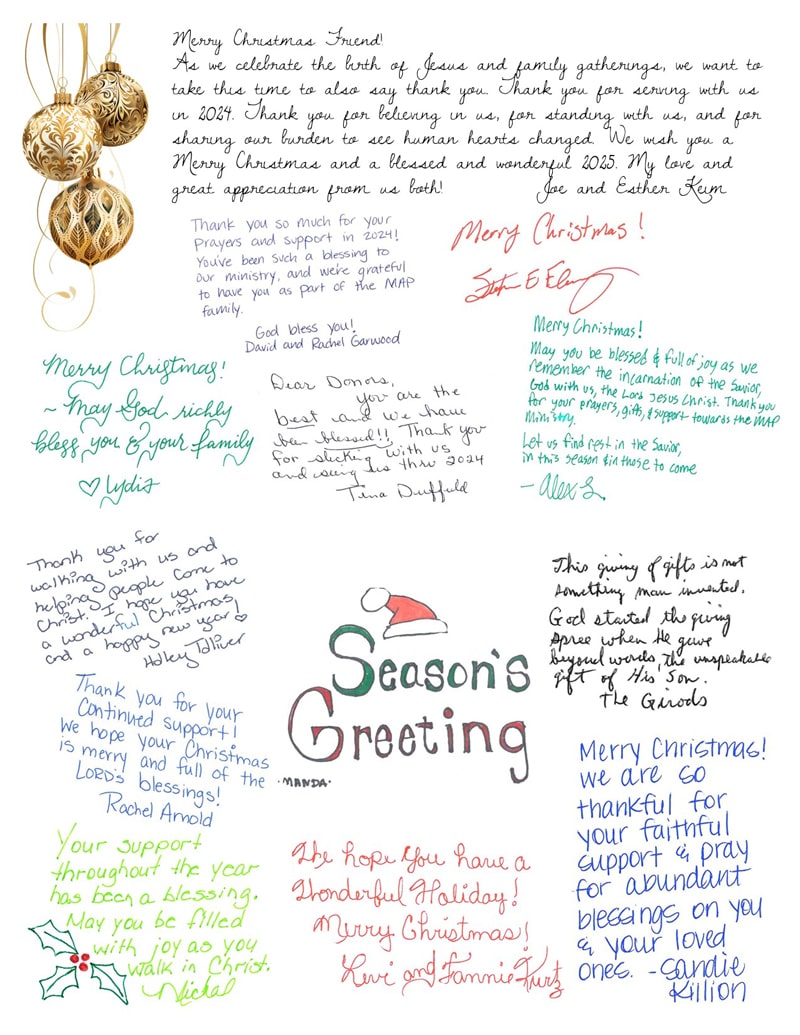 Merry Christmas Friend!
As we celebrate the birth of Jesus and family gatherings, we want to
take this time to also say thank you. Thank you for serving with us
in 2024. Thank you for believing in us, for standing with us, and for
sharing our burden to see human hearts changed. We wish you a
Merry Christmas and a blessed and wonderful 2025. My love and
great appreciation from us both! Joe and Esther Keim
Thank you so much for your
prayers and support in 2024!
You've been such a blessing to
our ministry, and we're grateful
to have you as part of the MAP
family.
God bless you!
David and Rachel Garwood
Merry Christmas!
Merry Christmas!
~ May God richly
bless you & your family
♡ Lydia
Dear Donors,
you are the
best and we have
been blessed!! Thank you
for sticking with us
and seeing us thru 2024
Tina Duffield
Merry Christmas!
May you be blessed & full of joy as we
remember the incarnation of the Savior,
God with us, the Lord Jesus Christ. Thank you
for your prayers, gifts, & support towards the MAP
Ministry.
Let us find rest in the Savior,
in this season & in those to come
- Alex S.
Thank you for
walking with us and
helping people come to
Christ. I hope you have
a wonderful Christmas
and a happy new year! ♡
Holley Tolliver
This giving of gifts is not
something man invented.
God started the giving
spree when He gave
beyond words, the unspeakable
gift of His Son.
The Girods
Season's
Greeting
·MANDA·
Thank you for your
continued support!
We hope your Christmas
is merry and full of the
LORD's blessings!
Rachel Arnold
Merry Christmas!
we are so
thankful for
your faithful
support & pray
for abundant
blessings on you
& your loved
ones. -Sandie
Killion
Your support
throughout the year
has been a blessing.
May you be filled
with joy as you
walk in Christ.
We hope you have a
Wonderful Holiday!
Merry Christmas!
Levi and Fannie Kurtz